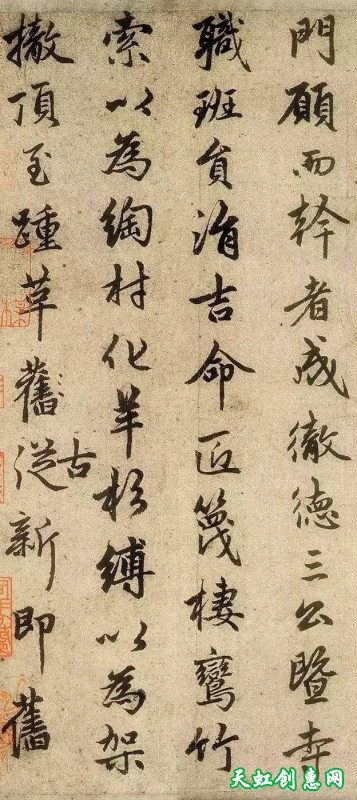 門願而幹者成徹德三公暨寺
職班員涓吉命匠篾棲鸞竹
索以為綯材化羊杉縛以為架
撤頂至踵革舊古從新即舊
天虹创惠网